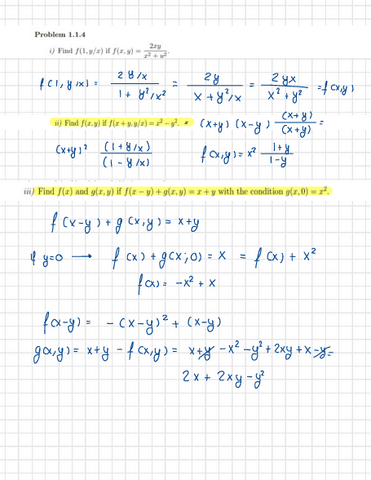 Problem 1.1.4
i) Find f(1, y/x) if f(x, y) = 2xy / (x² + y²).
f(1, y/x) = (2y/x) / (1 + y²/x²) = 2y / (x + y²/x) = 2yx / (x² + y²) = f(x,y)
ii) Find f(x, y) if f(x + y, y/x) = x² − y². (x+y)(x−y) (x+y)/(x+y) =
(x+y)² (1+y/x) / (1−y/x) f(x,y) = x² (1+y)/(1−y)
iii) Find f(x) and g(x, y) if f(x − y) + g(x, y) = x + y with the condition g(x, 0) = x².
f(x−y) + g(x,y) = x+y
if y=0 → f(x) + g(x;0) = x = f(x) + x²
f(x) = −x² + x
f(x−y) = −(x−y)² + (x−y)
g(x,y) = x+y − f(x,y) = x+y − x² − y² + 2xy + x − y =
2x + 2xy − y²